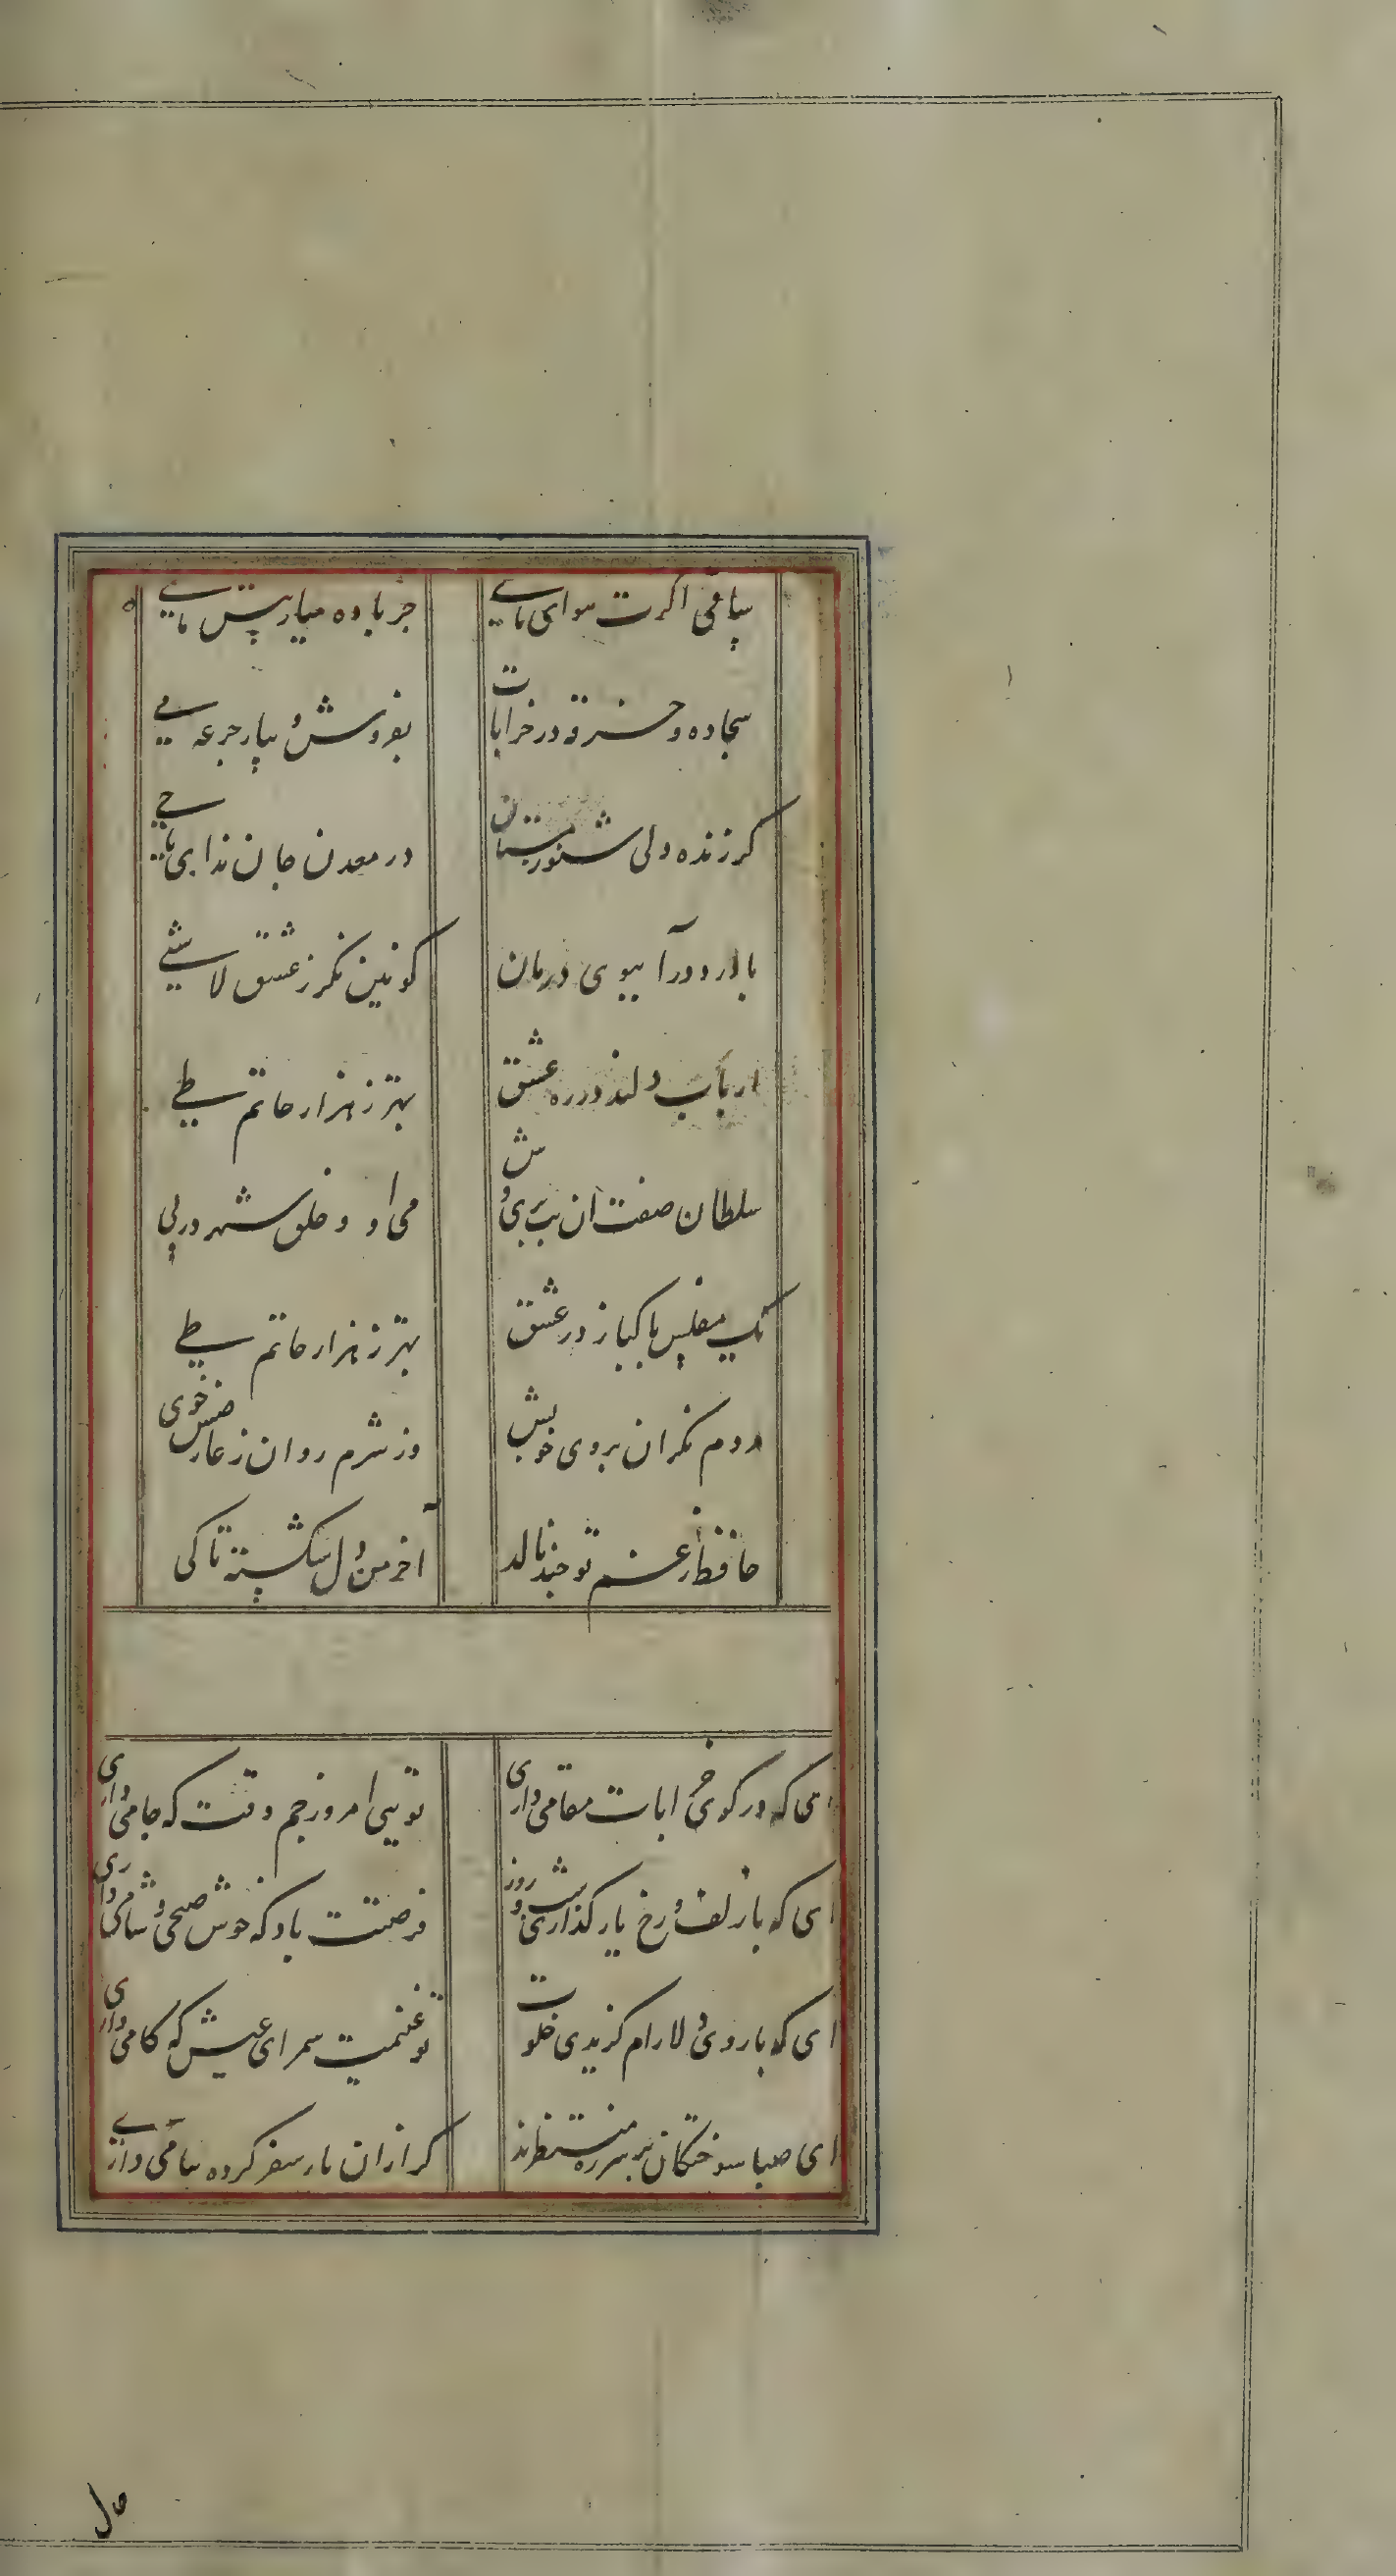 بیا می اگرت هوای مایی جز باده میار پیش مایی
سجاده و خرقه در خرابات بفروش و بیار جرعه می
گر زنده دلی شنو ز مستان در معدن جان ندای یاحی
با درد درآ ببوی درمان کونین نگر ز عشق لاشی
ارباب دلند در ره عشق بهتر ز هزار حاتم طی
سلطان صفت آن بت پری وش می او و خلق شهر در پی
یک مفلس پاکباز در عشق بهتر ز هزار حاتم طی
مردم نگران بروی خوبش وز شرم روان ز عارضش خوی
حافظ ز غم تو چند نالد آخر من و دل شکسته تا کی
ای که در کوی خرابات مقامی داری تویی امروز جم وقت که جامی داری
ای که با زلف و رخ یار گذاری شب و روز فرصتت باد که خوش صبحی و شامی داری
ای که با روی دلارام گزیدی خلوت تو غنیمت شمر ای عیش که کامی داری
ای صبا سوختگان بر سر ره منتظرند گر از آن یار سفر کرده پیامی داری